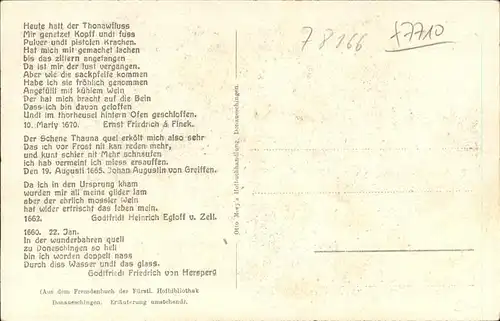 Heute hatt der Thonawfluss
Mir genetzet Kopff undt fuss
Pulver undt pistolen Krachen.
Hat mich mit gemachet lachen
bis das zittern angefangen
Da ist mir der lust vergangen.
Aber wie die sackpfeife kommen
Habe ich sie fröhlich genommen
Angefüllt mit kühlem Wein
Der hat mich bracht auf die Bein
Dass ich bin davon geloffen
Undt im thorheusel hintern Ofen geschloffen.
10. Marty 1670. Ernst Friedrich à Finek.
Der Schene Thauna quel erkölt mich also sehr
Das ich vor Frost nit kan reden mehr,
und kunt schier nit Mehr schnaufen
ich hab vermeint ich miess ersauffen.
Den 19. Augusti 1665. Johan Augustin von Greiffen.
Da ich in den Ursprung kham
wurden mir all meine glider lam
aber der ehrlich mossler Wein
hat wider erfrischt das leben mein.
1662. Godtfridt Heinrich Egloff v. Zell.
1660. 22. Jan.
In der wunderbahren quell
zu Doneschingen so hell
bin ich worden doppelt nass
Durch diss Wasser undt das glass.
Godtfriedt Friedrich von Mersperg
(Aus dem Fremdenbuch der Fürstl. Hofbibliothek
Donaueschingen. Erläuterung umstehend).
Otto Mory's Hofbuchhandlung, Donaueschingen.
78166
x7710